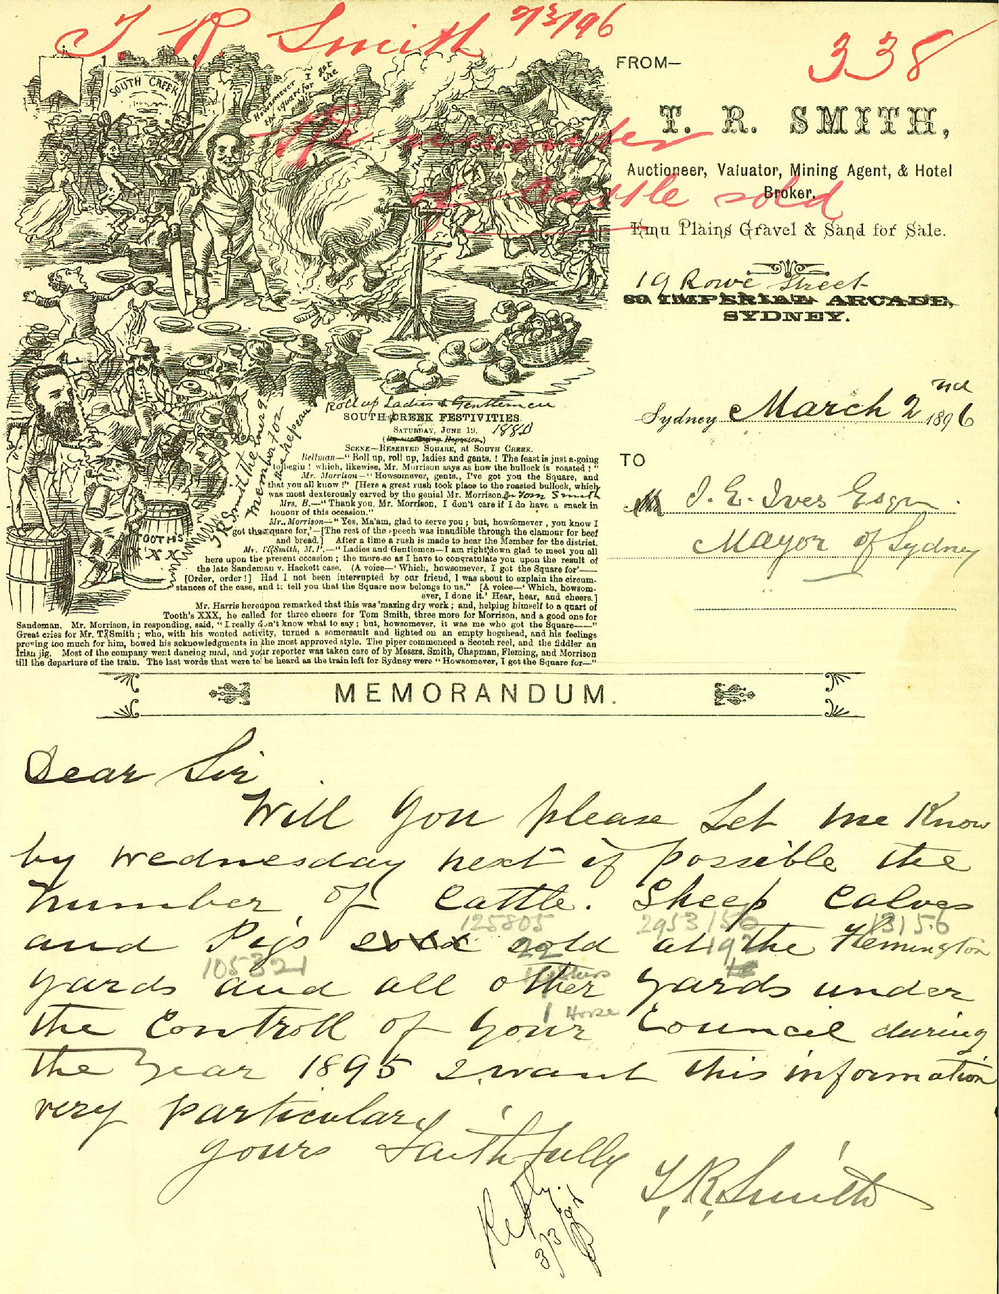 T. R. Smith 2/3/96
338
The number
of Cattle sold
SOUTH CREEK
Howsomever I got
the square for
FROM—
T. R. SMITH,
Auctioneer, Valuator, Mining Agent, & Hotel
Broker.
Emu Plains Gravel & Sand for Sale.
19 Rowe Street
80 IMPERIAL ARCADE,
SYDNEY.
Sydney March 2nd 1896
TO
Mr J. E. Ives Esqr
Mayor of Sydney
Roll up Ladies & Gentlemen
SOUTH CREEK FESTIVITIES.
SATURDAY, JUNE 19. 1880
SCENE—RESERVED SQUARE, AT SOUTH CREEK.
Bellman—"Roll up, roll up, ladies and gents.! The feast is just a-going
to begin! which, likewise, Mr. Morrison says as how the bullock is roasted!"
Mr. Morrison—"Howsomever, gents., I've got you the Square, and
that you all know!" [Here a great rush took place to the roasted bullock, which
was most dexterously carved by the genial Mr. Morrison & Tom Smith
Mrs. B.—"Thank you, Mr. Morrison, I don't care if I do have a smack in
honour of this occasion."
Mr. Morrison—"Yes, Ma'am, glad to serve you; but, howsomever, you know I
got the square for,"—[The rest of the speech was inaudible through the clamour for beef
and bread.] After a time a rush is made to hear the Member for the district.
Mr. T R Smith, M.P.—"Ladies and Gentlemen—I am right down glad to meet you all
here upon the present occasion; the more so as I have to congratulate you upon the result of
the late Sandeman v. Hackett case. (A voice—'Which, howsomever, I got the Square for'——
[Order, order!] Had I not been interrupted by our friend, I was about to explain the circum-
stances of the case, and to tell you that the Square now belongs to us." [A voice—'Which, howsom-
ever, I done it.' Hear, hear, and cheers.]
Mr. Harris hereupon remarked that this was 'mazing dry work; and, helping himself to a quart of
Tooth's XXX, he called for three cheers for Tom Smith, three more for Morrison, and a good one for
Sandeman. Mr. Morrison, in responding, said, "I really don't know what to say; but, howsomever, it was me who got the Square——"
Great cries for Mr. T R Smith; who, with his wonted activity, turned a somersault and lighted on an empty hogshead, and his feelings
proving too much for him, bowed his acknowledgments in the most approved style. The piper commenced a Scotch reel, and the fiddler an
Irish jig. Most of the company went dancing mad, and your reporter was taken care of by Messrs. Smith, Chapman, Fleming, and Morrison
till the departure of the train. The last words that were to be heard as the train left for Sydney were "Howsomever, I got the Square for—"
TOOTH'S
XXX
MEMORANDUM.
Dear Sir
Will you please Let me Know
by Wednesday next if possible the
Number of Cattle. Sheep Calves
125805 2953156 13156
and Pigs sold at the Flemington
22 192
105321
yards and all other yards under
1 Horse
the Controll of your Council during
the Year 1895 I want this information
very particular
yours Faithfully
T. R. Smith
Reply.
3/3/96